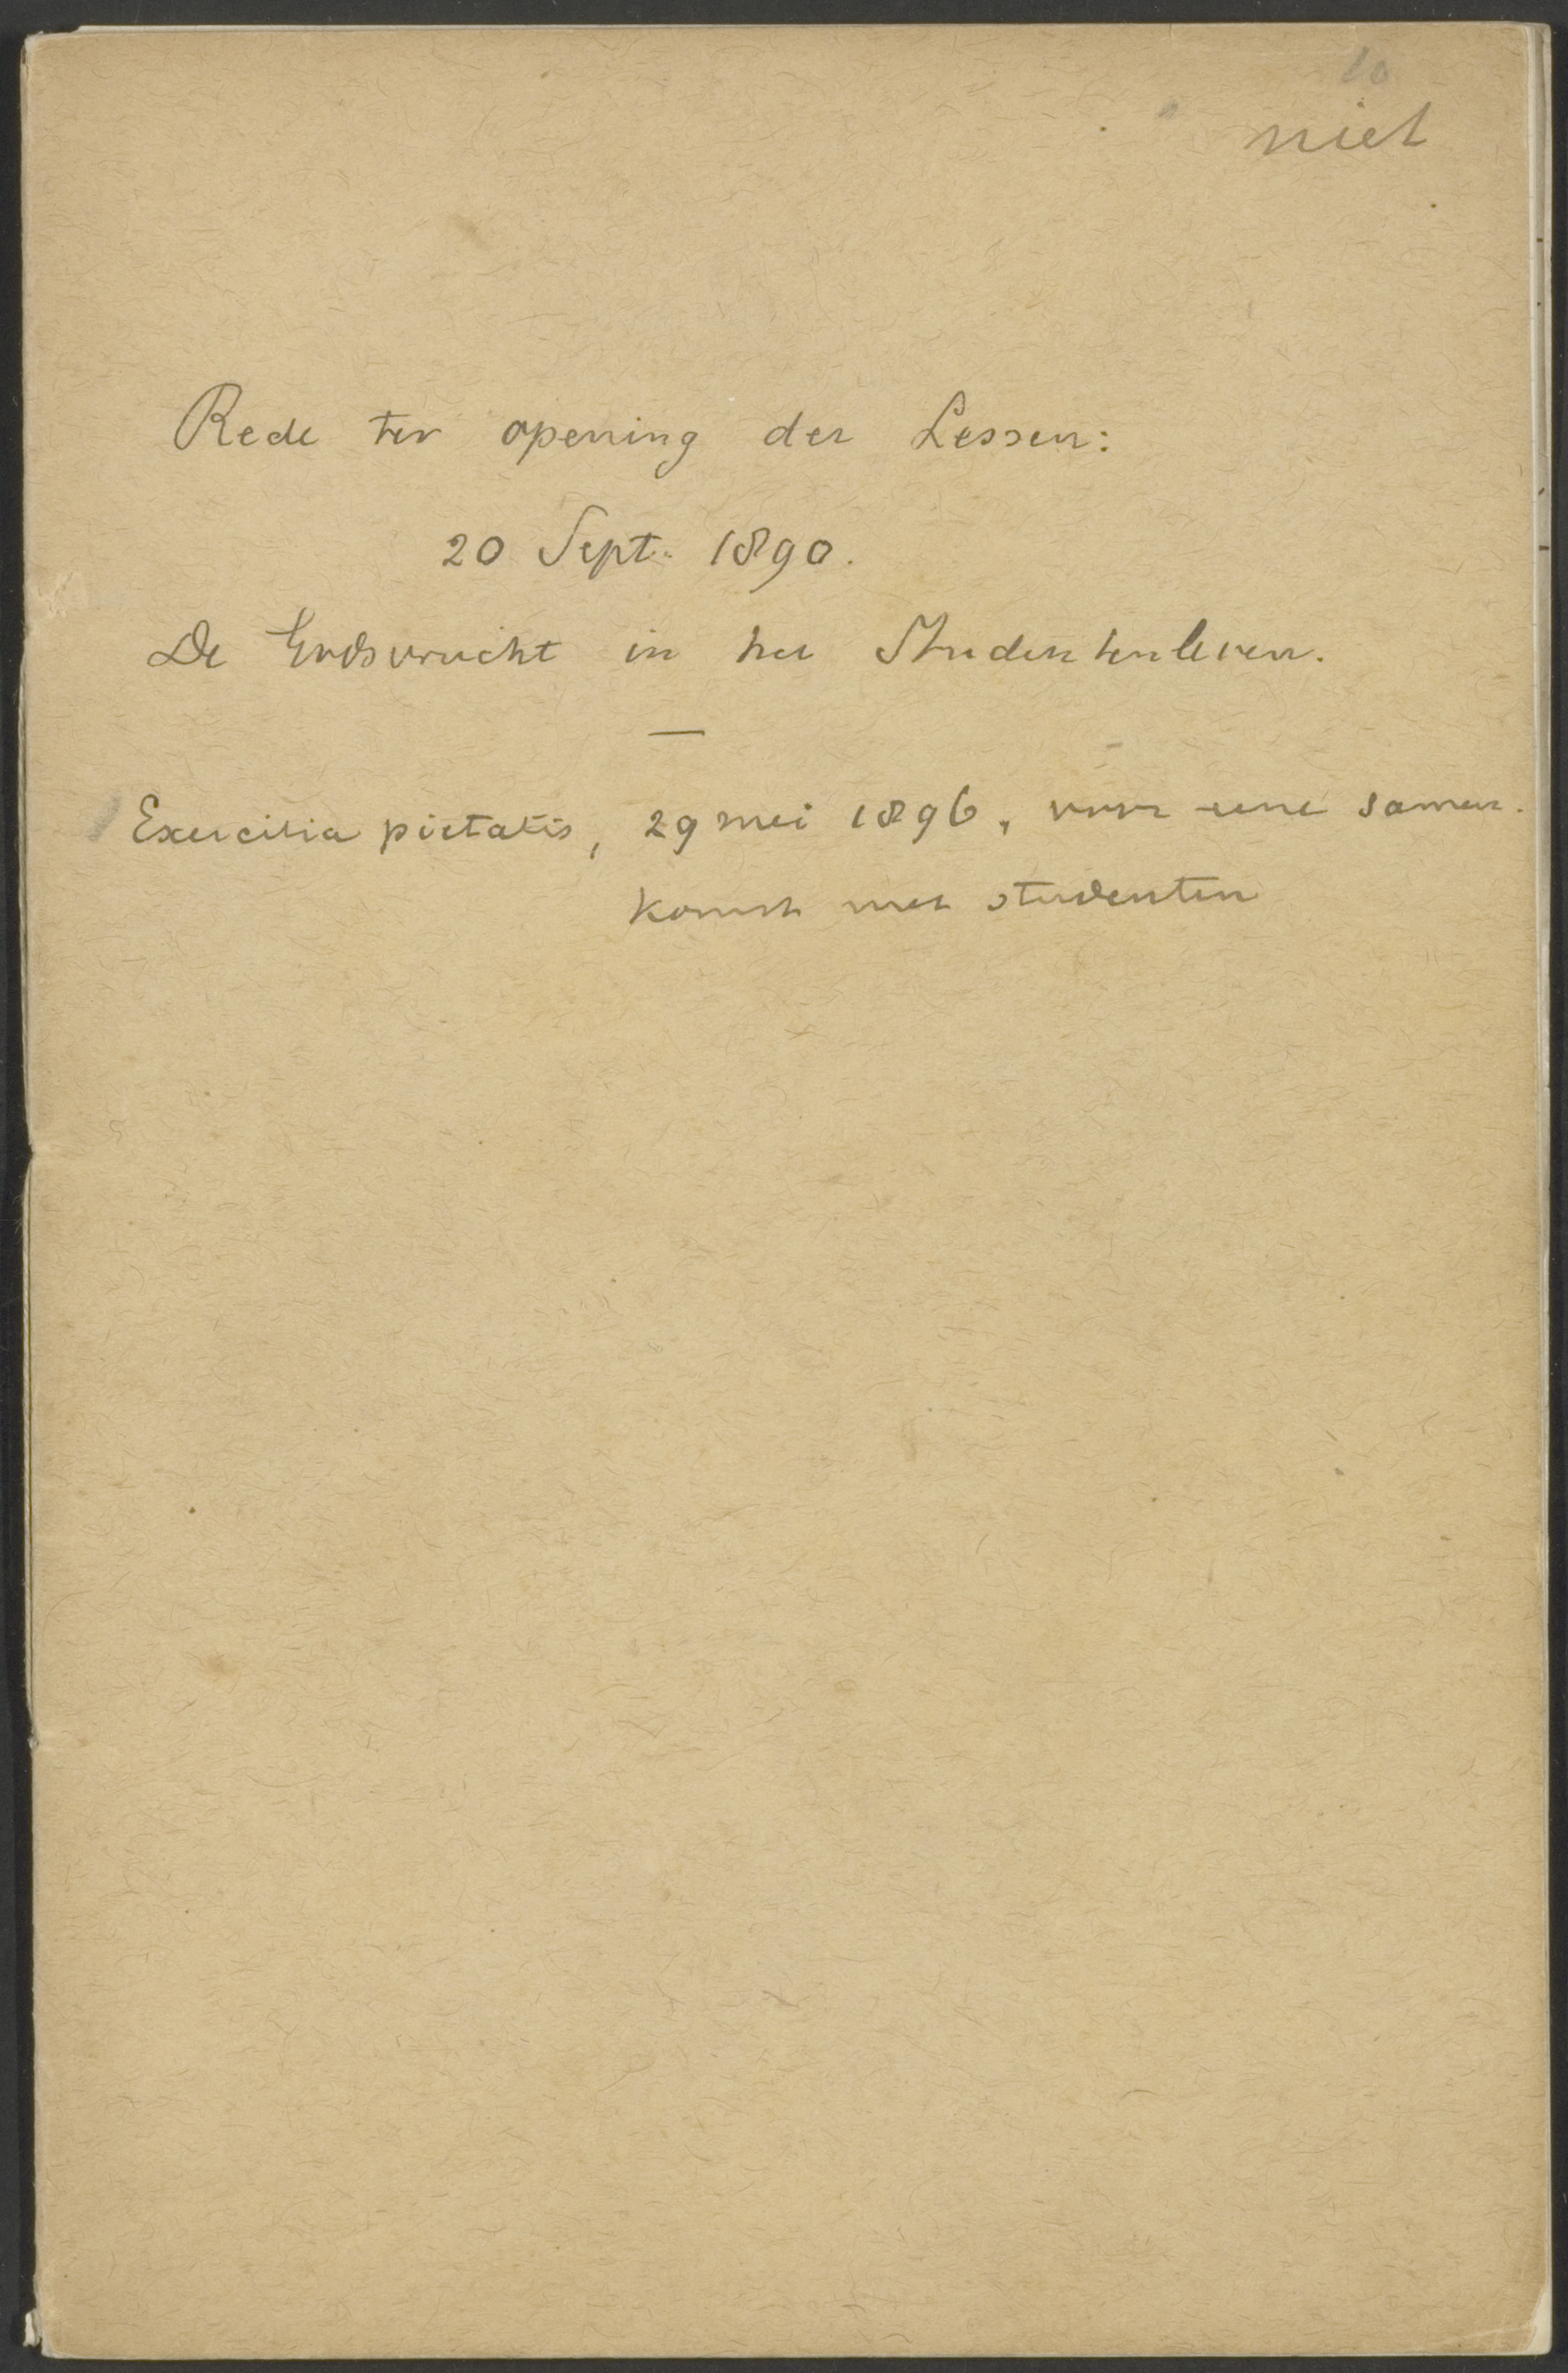 10
niet
Rede ter opening der Lessen:
20 Sept. 1890.
De Godsvrucht in het Studentenleven.
—
Exercitia pietatis, 29 mei 1896, voor eene samen-
komst met studenten